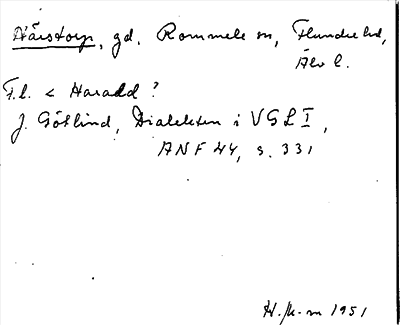 Härstorp, gd. Rommele sn, Flundre hd,
Älv l.
F.l. < Haradd?
J. Götlind, Dialekten i VGL I,
ANF 44, s. 331
1951